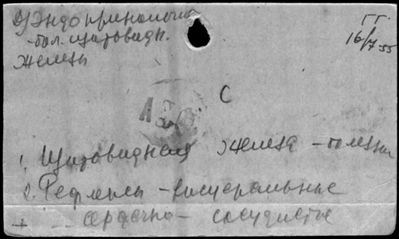 Эндокринология
-бол. щитовидн.
железы
ГГ.
16/7 55
С
1. Щитовидная железа - болезни
2. Рефлексы - висцеральные
сердечно - сосудистые
+